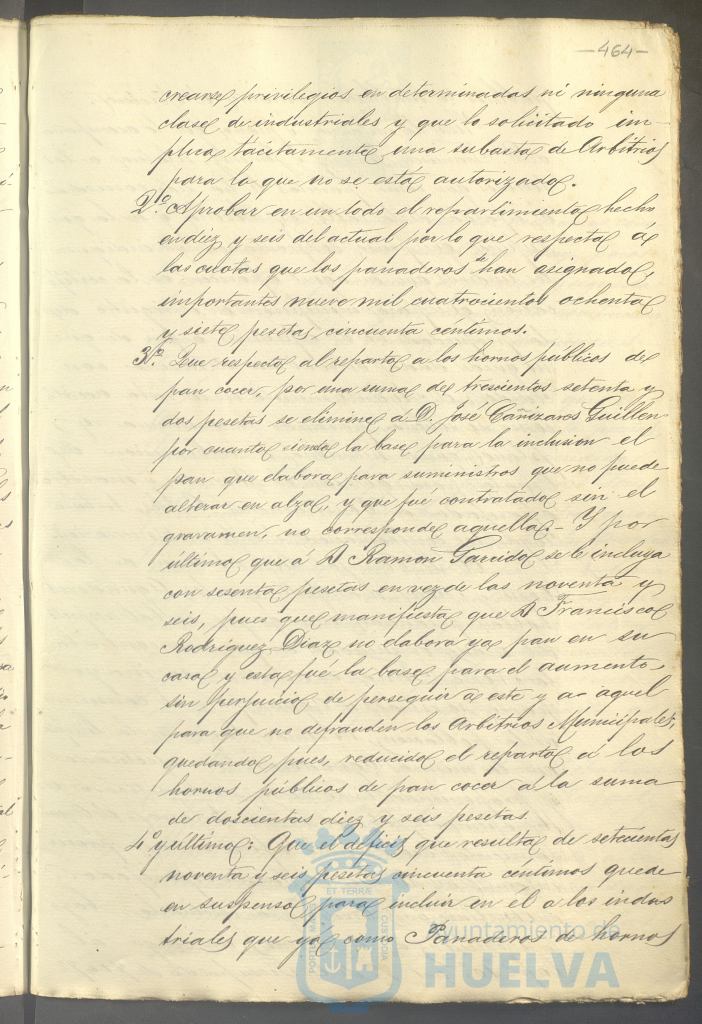 -464-
crearse privilegios en determinadas ni ninguna
clase de industriales y que lo solicitado im-
plica tácitamente una subasta de Arbitrios
para lo que no se está autorizado.
2º. Aprobar en un todo el repartimiento hecho
en diez y seis del actual por lo que respecta á
las cuotas que los panaderos se han asignado,
importantes nueve mil cuatrocientos ochenta
y siete pesetas cincuenta céntimos.
3º. Que respecto al reparto a los hornos públicos de
pan cocer, por una suma de trescientos setenta y
dos pesetas se elimine a D. José Cañizares Guillen
por cuanto siendo la base para la inclusion el
pan que elabora para suministros que no puede
alterar en alza, y que fué contratado sin el
gravamen, no corresponde aquella.- Y por
último que á D Ramon Garrido se le incluya
con sesenta pesetas en vez de las noventa y
seis, pues que manifiesta que D Francisco
Rodriguez Diaz no elabora ya pan en su
casa y esta fué la base para el aumento,
sin perjuicio de perseguir á este y a aquel
para que no defrauden los Arbitrios Municipales,
quedando pues, reducido el reparto á los
hornos públicos de pan cocer á la suma
de doscientas diez y seis pesetas.
4º y último: Que el déficit que resulta de setecientas
noventa y seis pesetas cincuenta céntimos quede
en suspenso para incluir en él a los indus
triales que ya como Panaderos de hornos
Ayuntamiento de
HUELVA